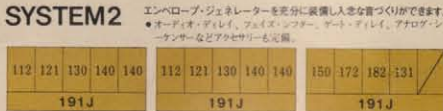 SYSTEM2
エンベロープ・ジェネレーターを充分に装備し入念な音づくりができます。
●オーディオ・ディレイ、フェイズ・シフター、ゲート・ディレイ、アナログ・シーケンサーなどアクセサリーも完備。
112 121 130 140 140
191J
112 121 130 140 140
191J
150 172 182 131
191J